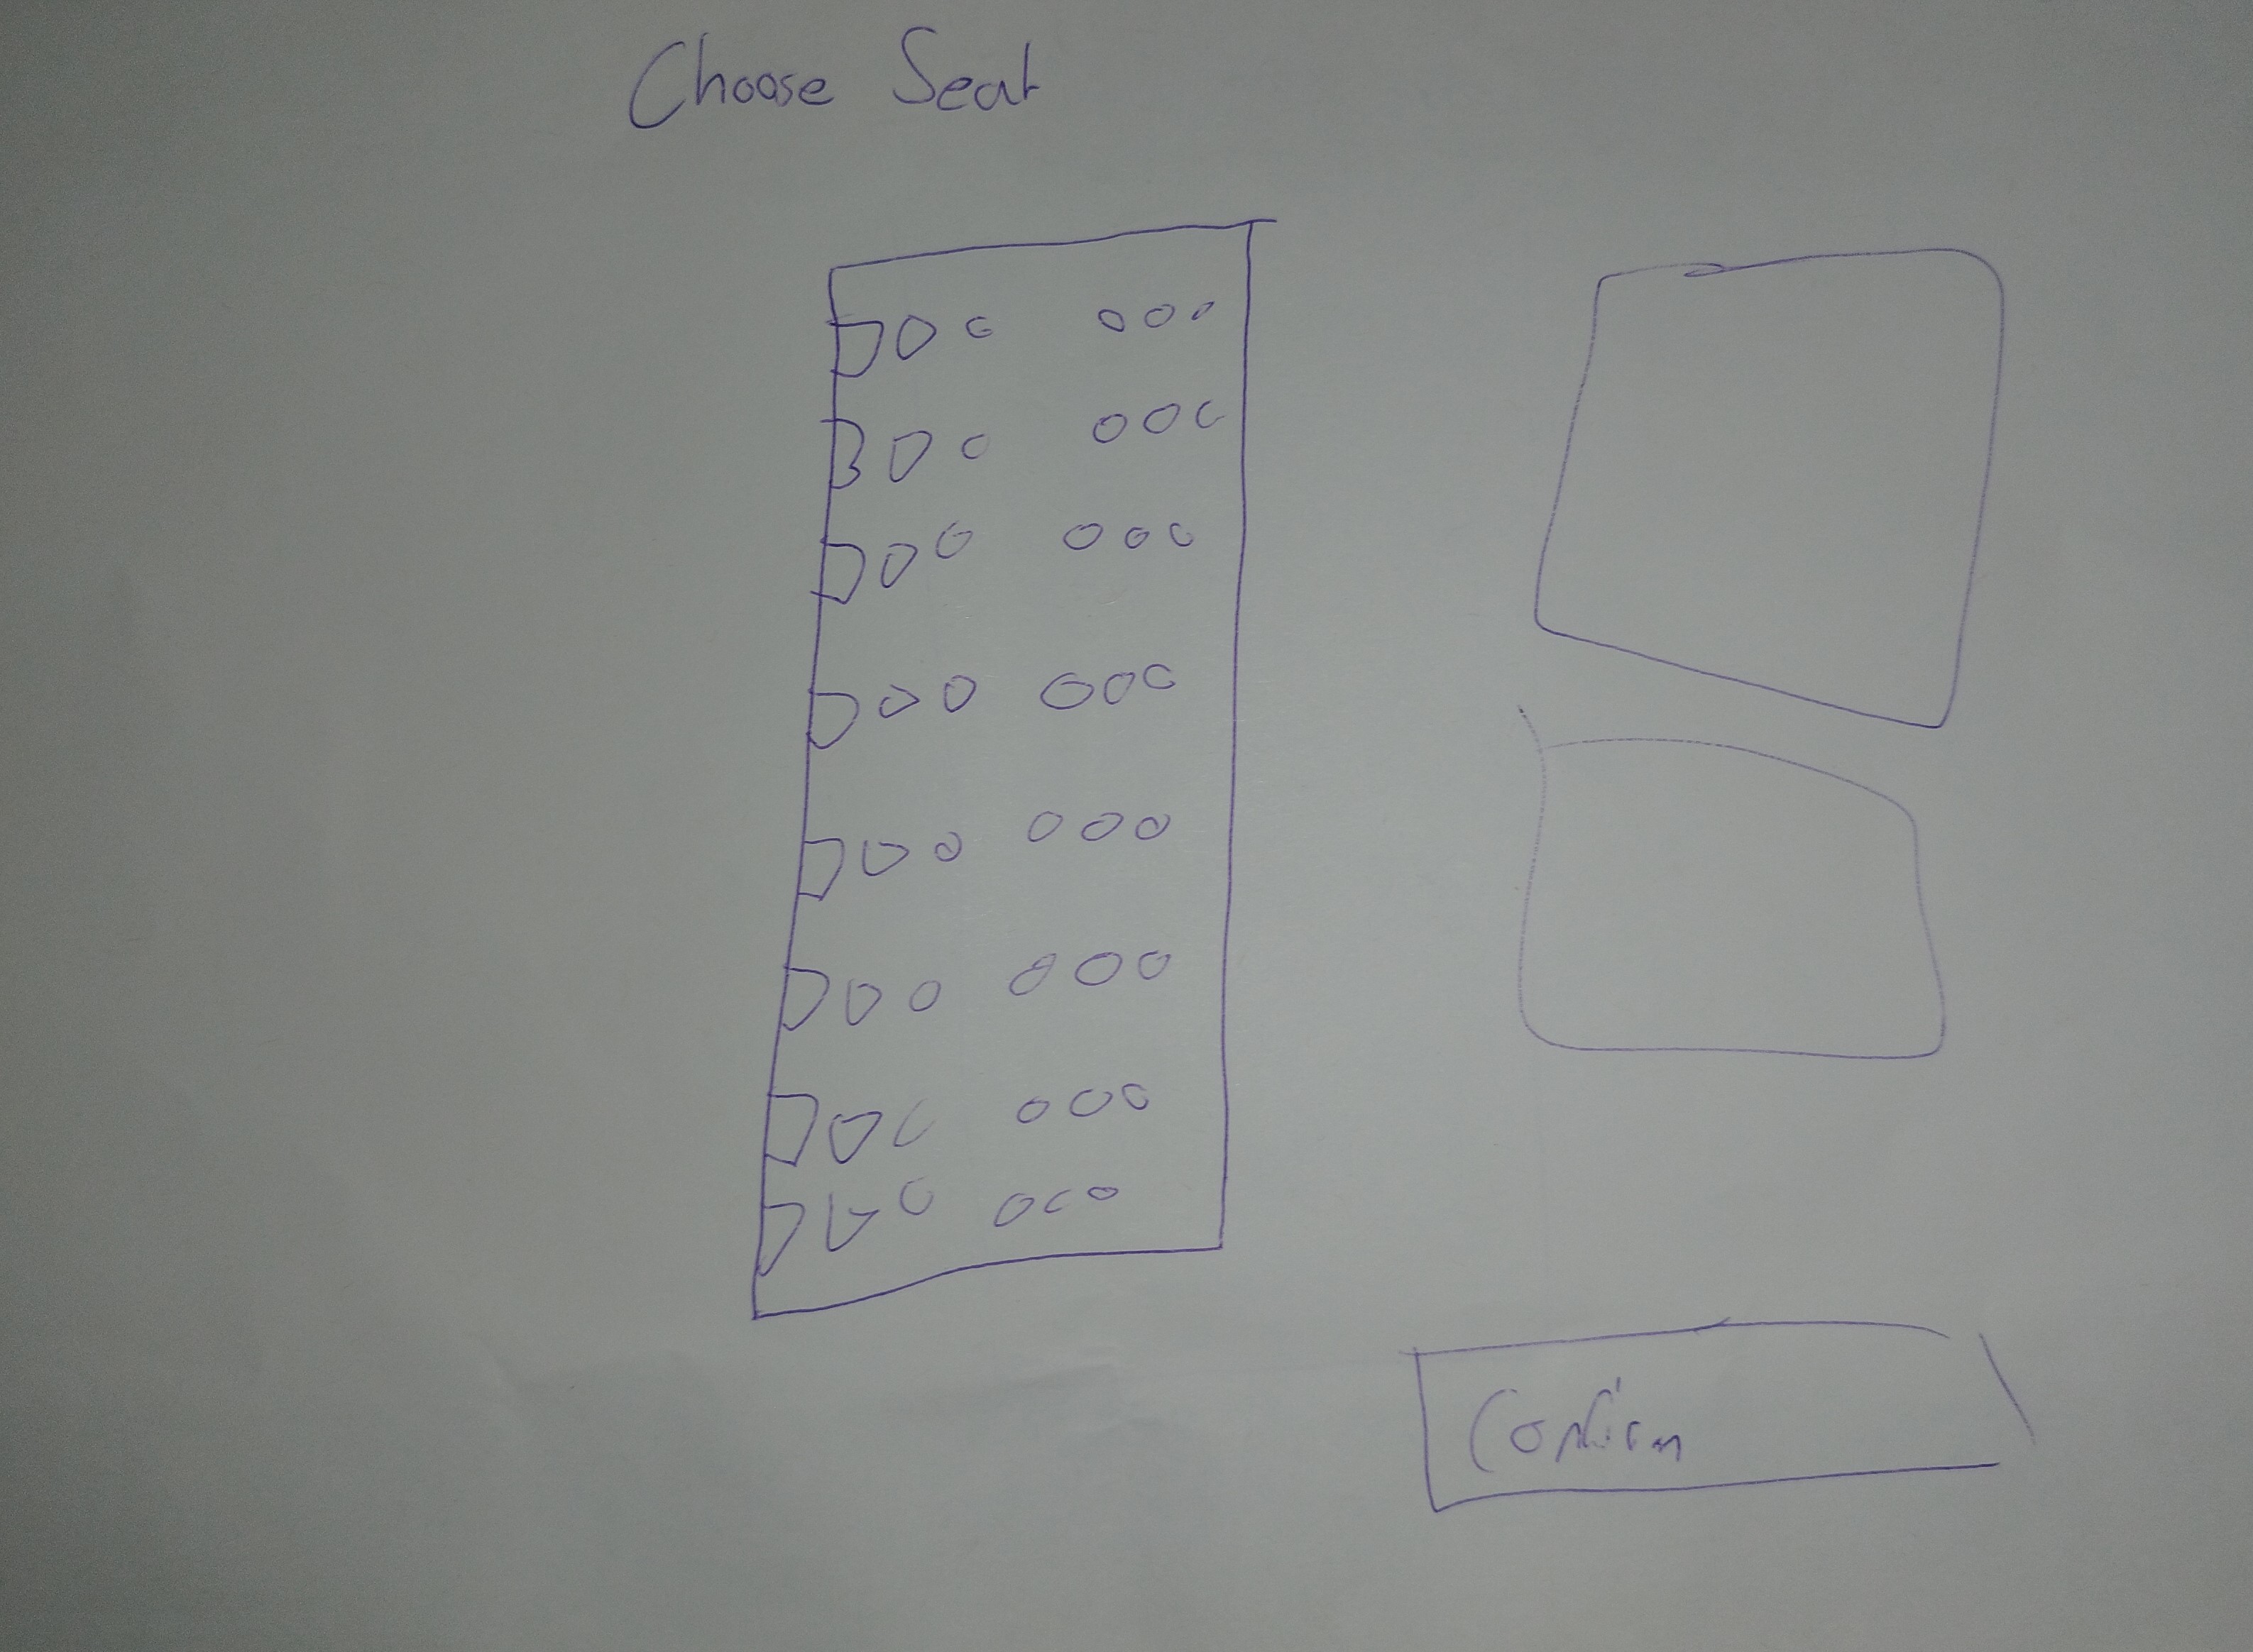 Choose Seat
Confirm